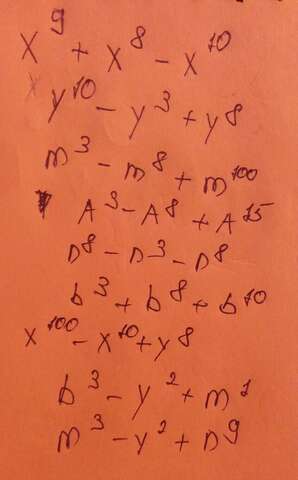 x⁹ + x⁸ - x¹⁰
y¹⁰ - y³ + y⁸
m³ - m⁸ + m¹⁰⁰
A³ - A⁸ + A¹⁵
n⁸ - n³ - n⁸
b³ + b⁸ + b¹⁰
x¹⁰⁰ - x¹⁰ + y⁸
b³ - y² + m²
m³ - y² + n⁹